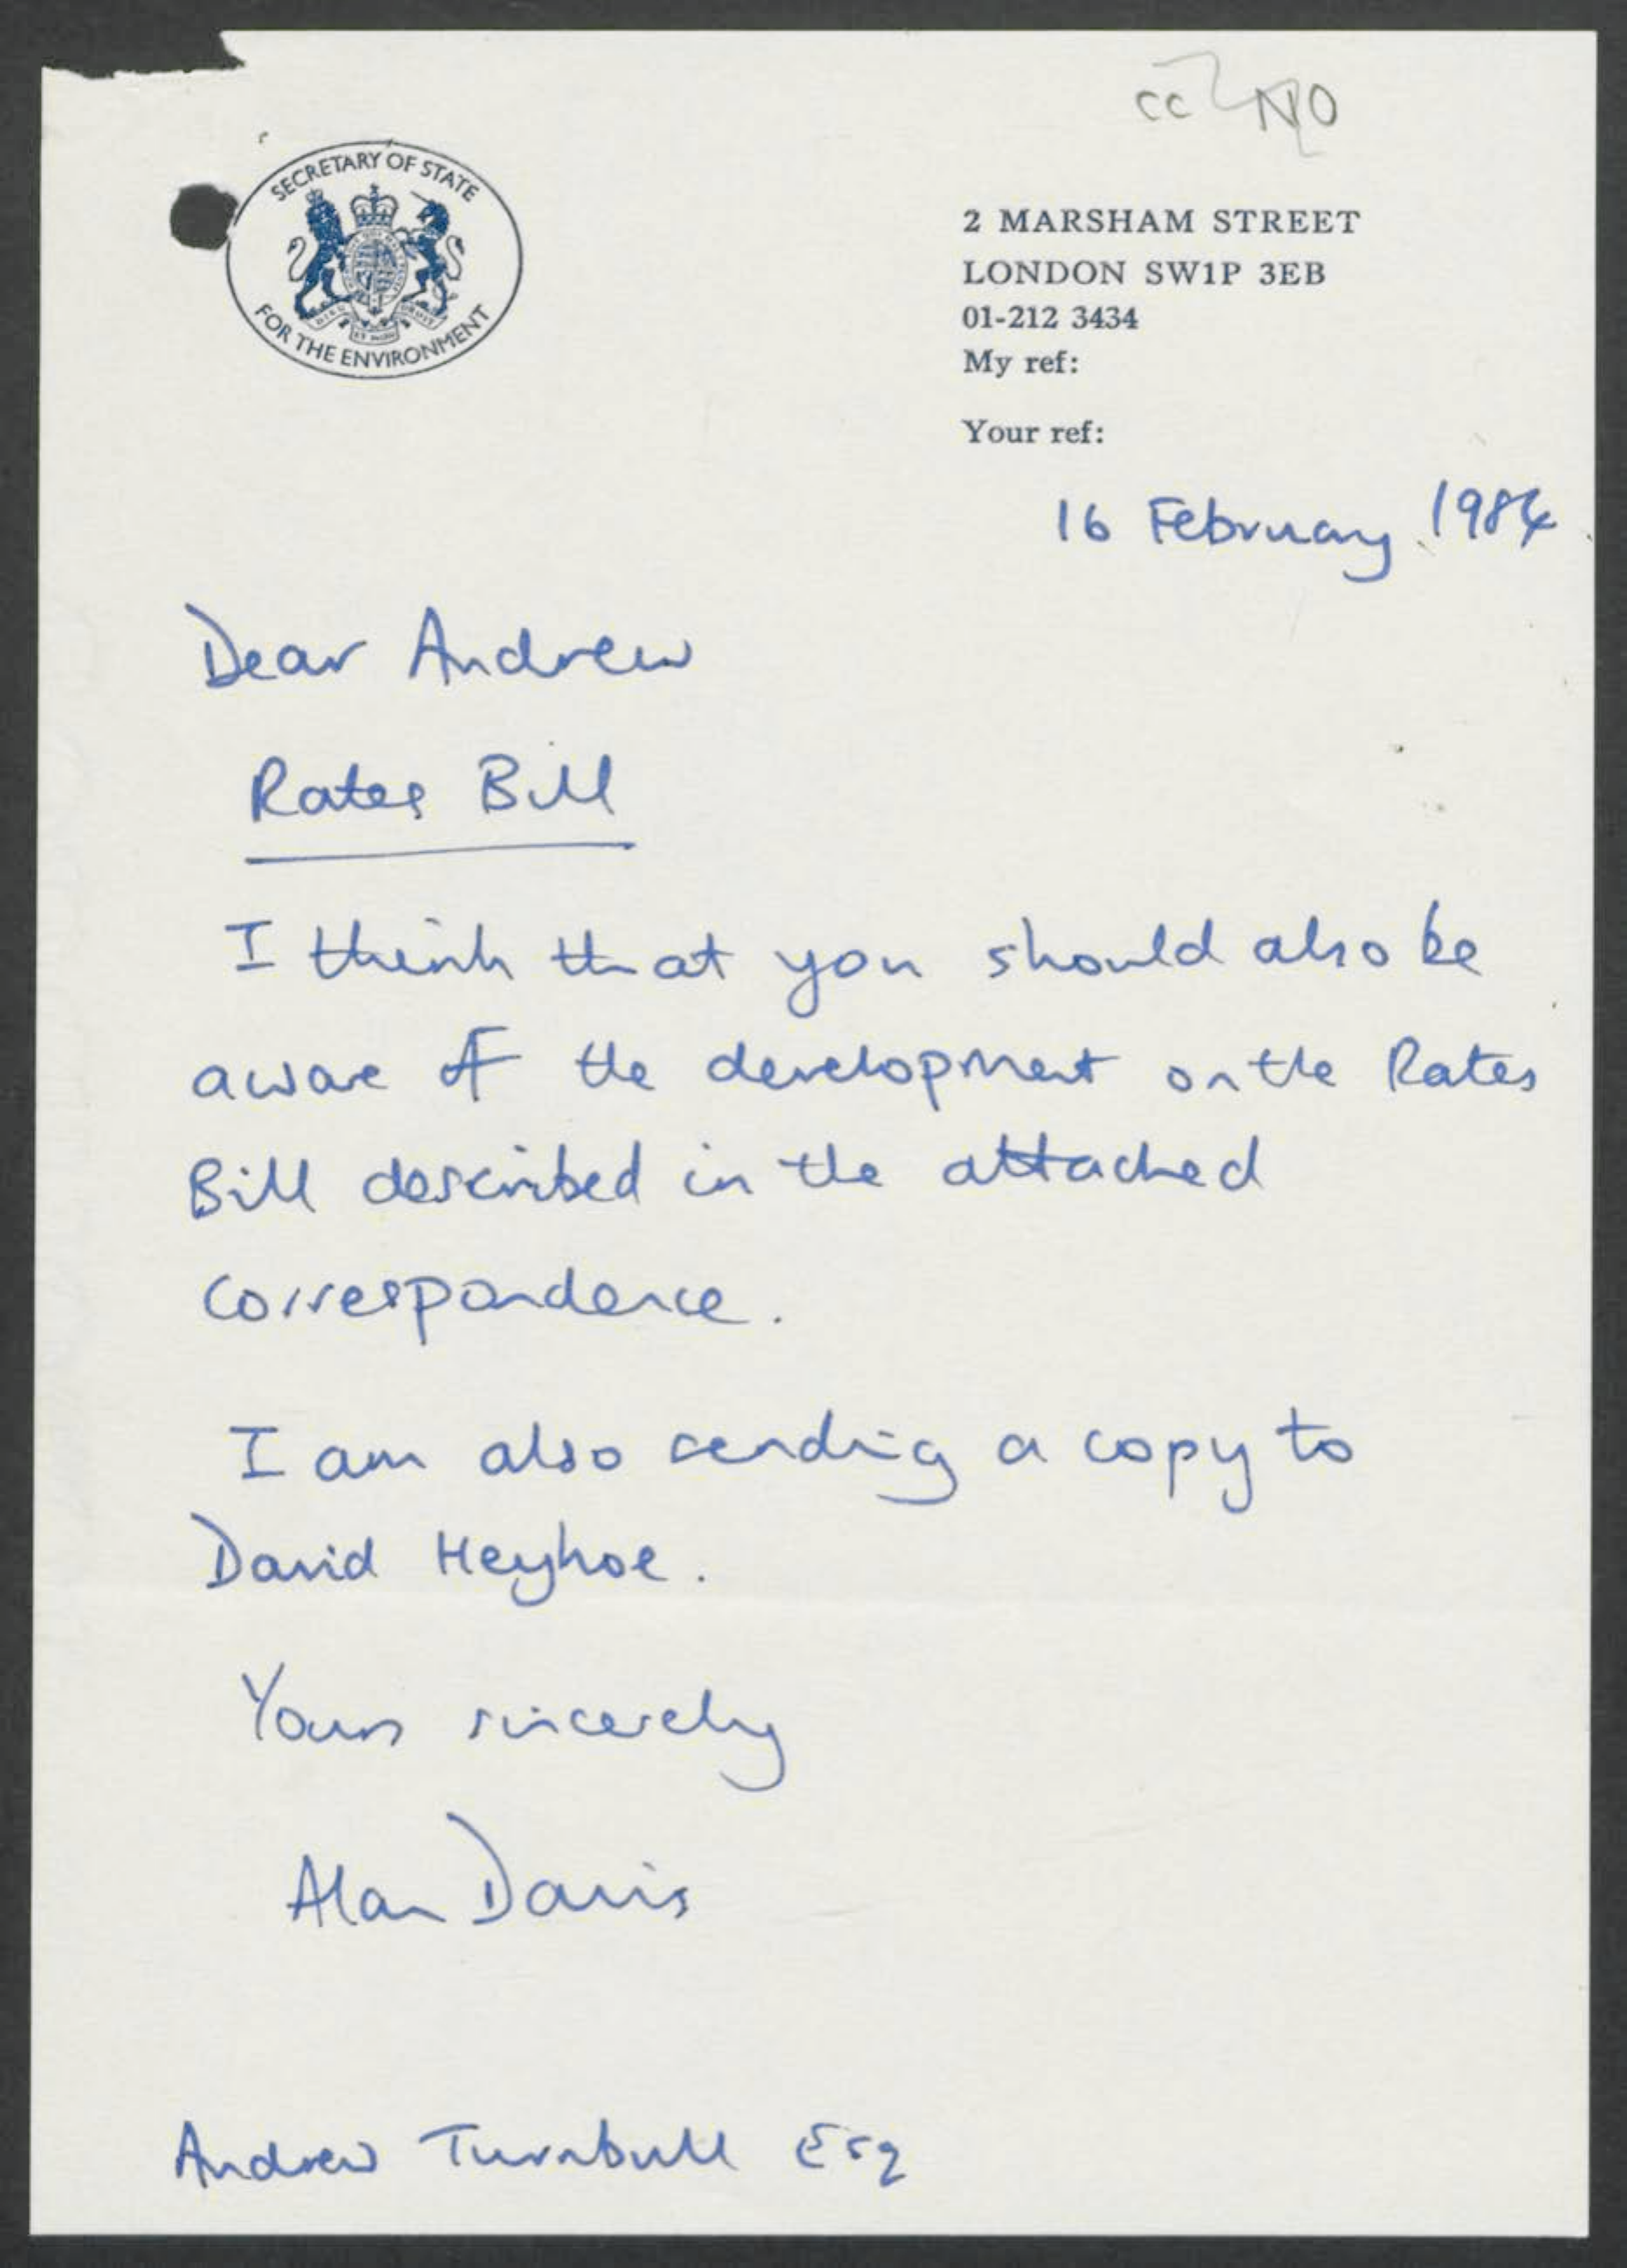 cc NO
SECRETARY OF STATE
FOR THE ENVIRONMENT
2 MARSHAM STREET
LONDON SW1P 3EB
01-212 3434
My ref:
Your ref:
16 February 1984
Dear Andrew
Rates Bill
I think that you should also be
aware of the development on the Rates
Bill described in the attached
correspondence.
I am also sending a copy to
David Heyhoe.
Yours sincerely
Alan Davis
Andrew Turnbull Esq